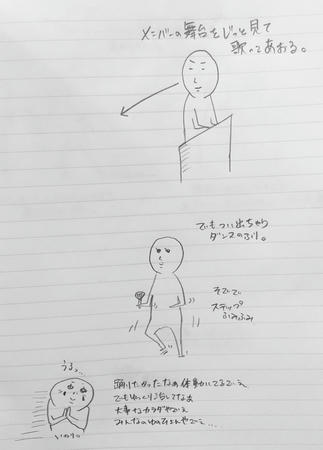 メンバーの舞台をじっと見て
歌ってあおる。
でもつい出ちゃう
ダンスのふり。
そでで
ステップ
ふみふみ
うるっ…
いのり。
踊りたかったなぁ 体動いてるでぇ
でもゆっくり治してなぁ
大事なカラダやでぇ
みんなの